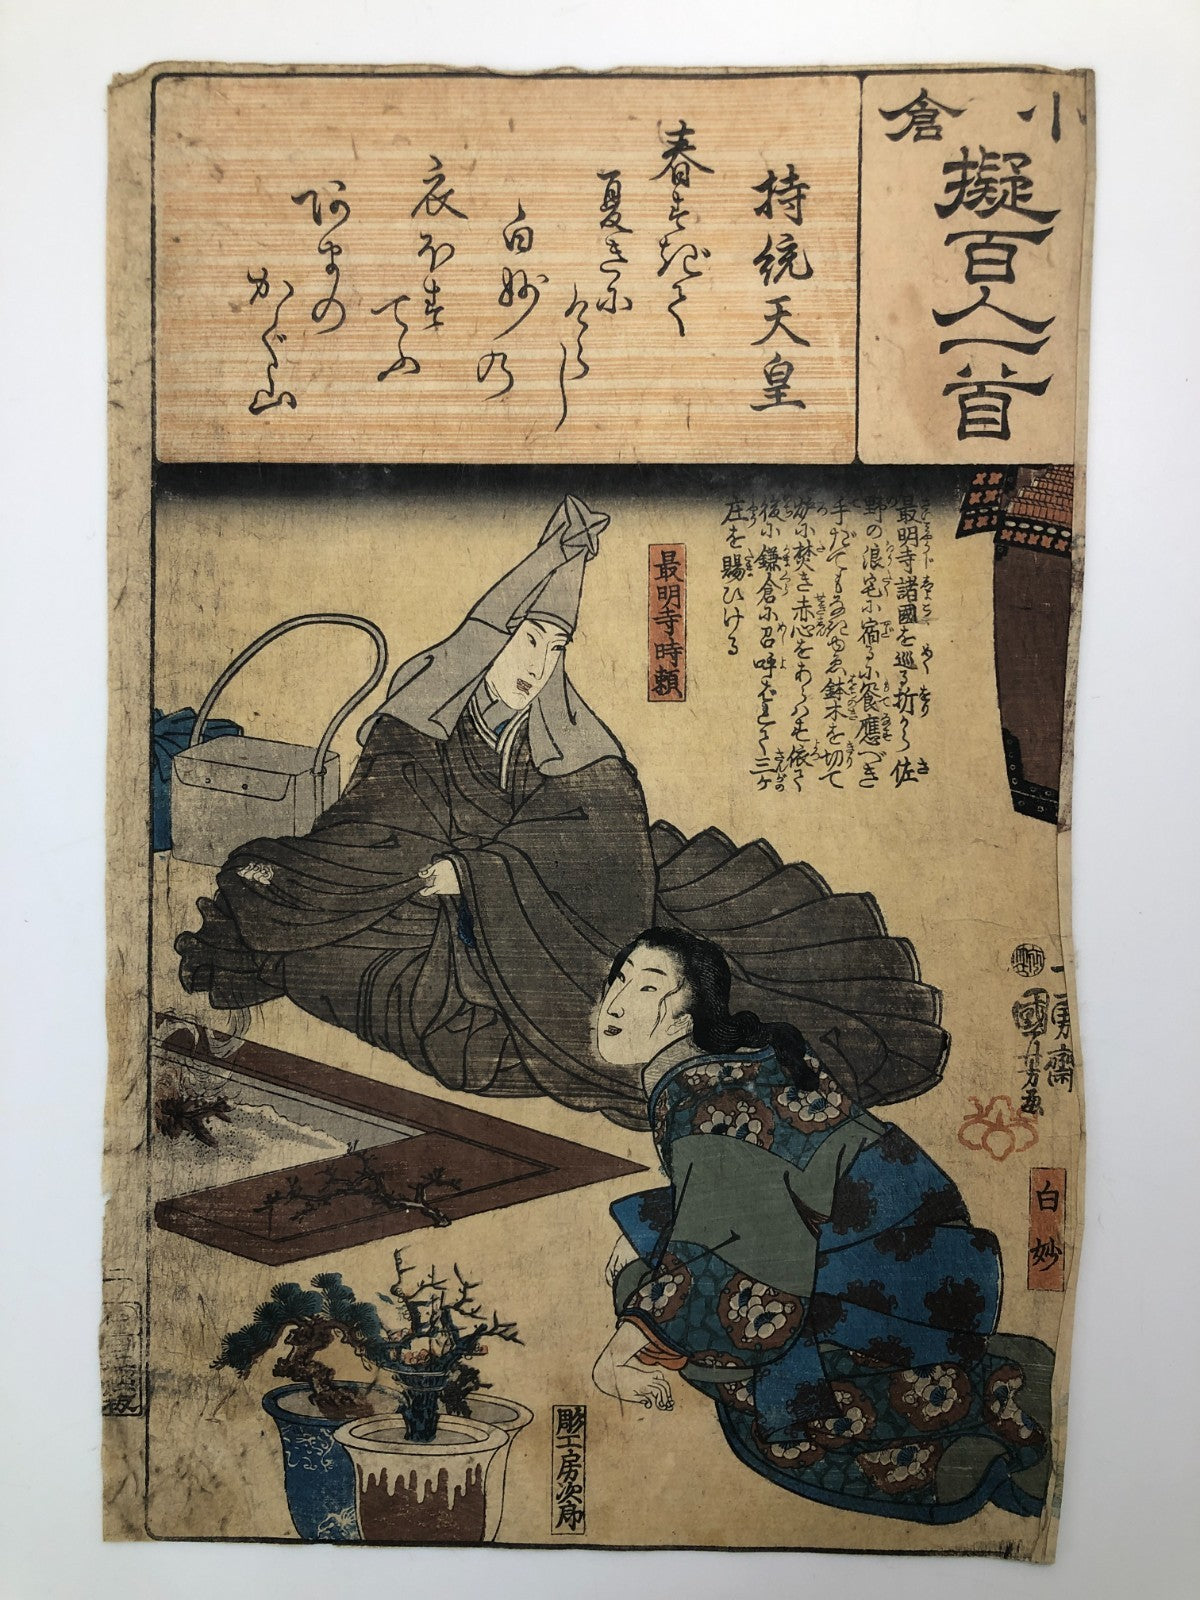 小倉
擬百人一首
持統天皇
春すぎて
夏きに
けらし
白妙の
衣ほす
てふ
あまの
かぐ山
最明寺諸國を巡る折から佐
野の浪宅に宿るに饗應べき
手だてもなきゆゑ鉢木を切て
炉に焚き赤心をあらはす依て
後に鎌倉に召呼ばれて三ヶ
庄を賜ひける
最明寺時頼
一勇齋
國芳画
白妙
彫工房次郎